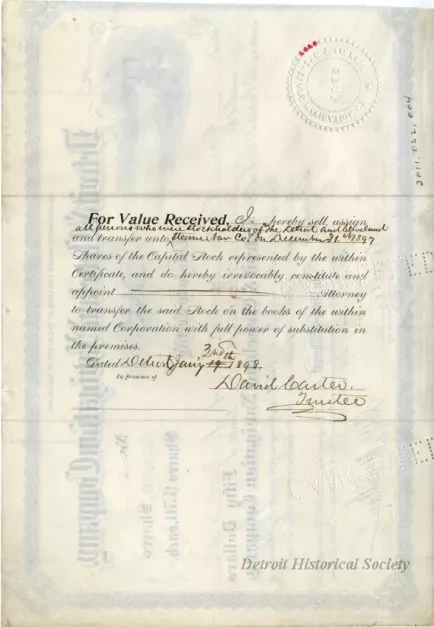 2011.062.004
For Value Received, I hereby sell, assign
all persons who were stockholders of the Detroit and Cleveland
and transfer unto Steam Nav Co. on December 31st 1897
Shares of the Capital Stock represented by the within
Certificate, and do hereby irrevocably constitute and
appoint Attorney
to transfer the said Stock on the books of the within
named Corporation with full power of substitution in
the premises.
Dated Detroit Jany 1898.
In presence of
David Carter.
Trustee
CANCELLED
Detroit Historical Society